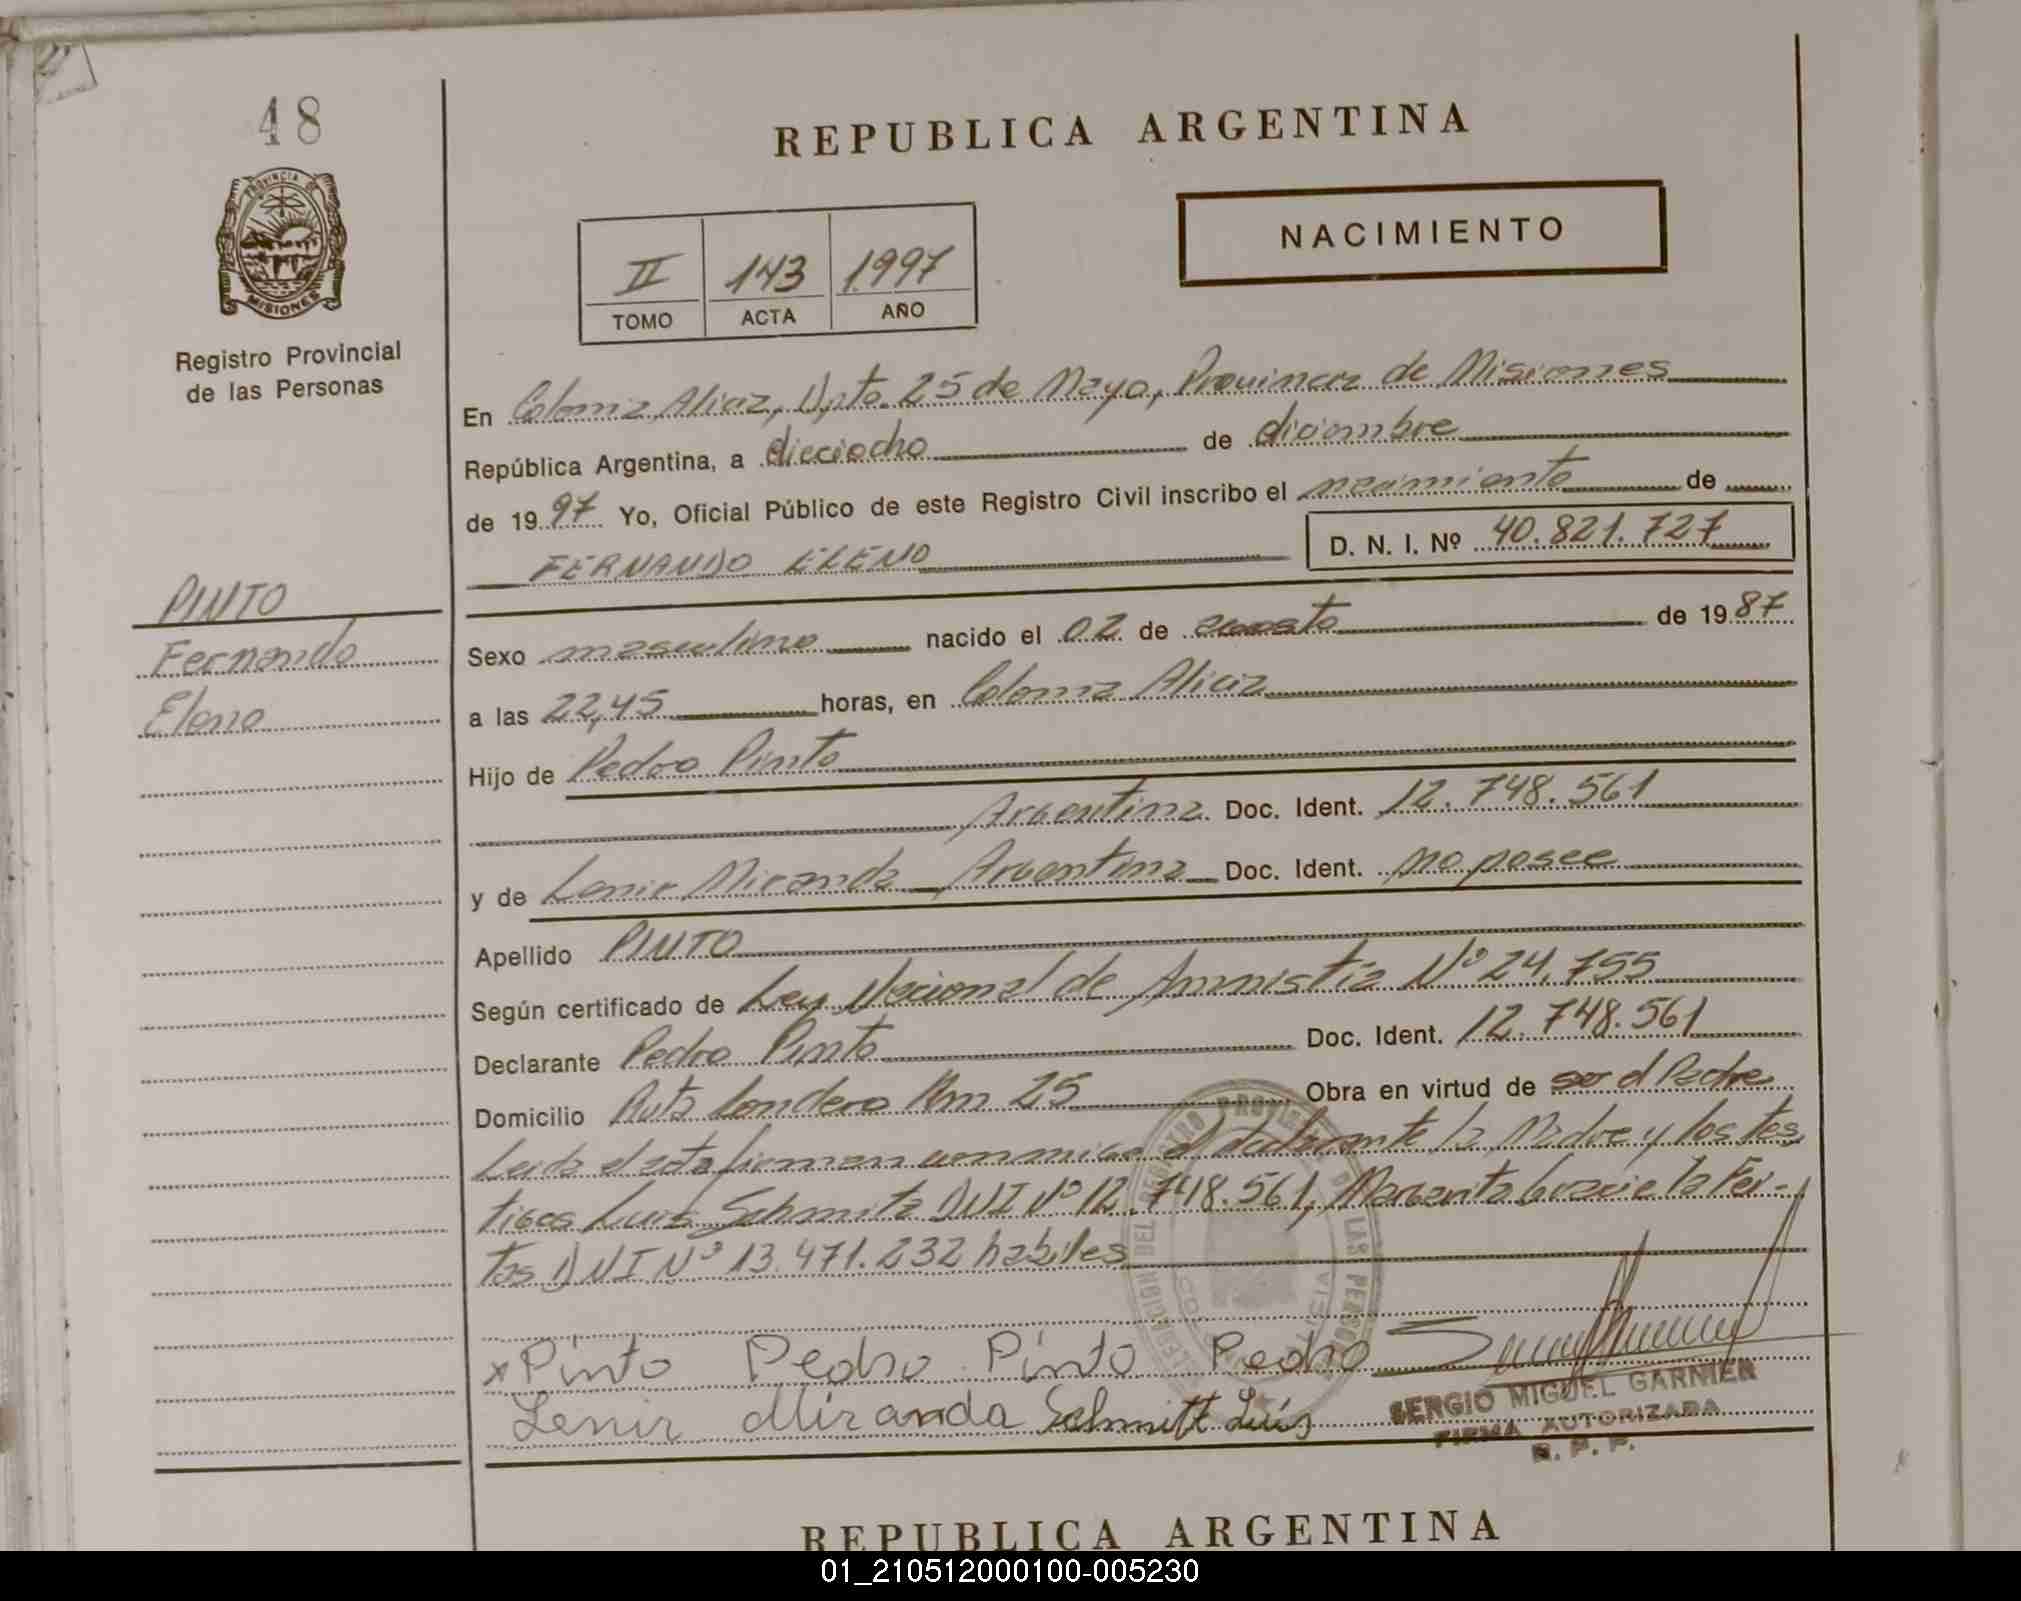 48
REPUBLICA ARGENTINA
NACIMIENTO
II 143 1997
TOMO ACTA AÑO
PROVINCIA DE
MISIONES
Registro Provincial
de las Personas
En Colonia Alicia, Dpto. 25 de Mayo, Provincia de Misiones
República Argentina, a dieciocho de diciembre
de 1997 Yo, Oficial Público de este Registro Civil inscribo el nacimiento de
FERNANDO ELENO D. N. I. Nº 40.821.727
PINTO
Fernando
Eleno
Sexo masculino nacido el 02 de agosto de 1987
a las 22,45 horas, en Colonia Alicia
Hijo de Pedro Pinto
Argentina Doc. Ident. 12.748.561
y de Lenir Miranda Argentina Doc. Ident. no posee
Apellido PINTO
Según certificado de Ley Nacional de Amnistía Nº 24.755
Declarante Pedro Pinto Doc. Ident. 12.748.561
Domicilio Ruta Costera Km 25 Obra en virtud de ser el Padre
Leida el acta firman conmigo el declarante la Madre y los tes
tigos Luis Schmitt DNI Nº 12.748.561, Margarita Graciela Frei-
tas DNI Nº 13.471.232 habiles
x Pinto Pedro Pinto Pedro
Lenir Miranda Schmitt Luis
SERGIO MIGUEL GARNIER
FIRMA AUTORIZADA
R. P. P.
REPUBLICA ARGENTINA
01_210512000100-005230